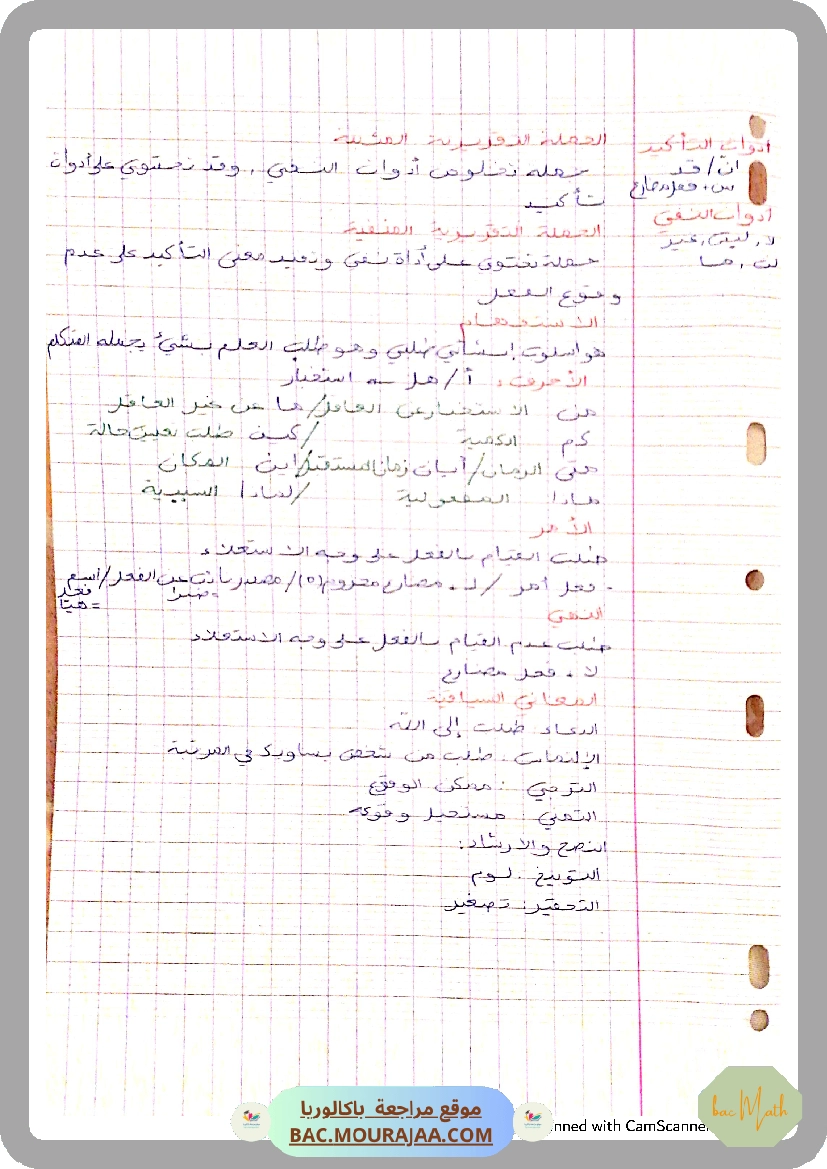 أدوات التأكيد
إنّ / قد
س + فعل مضارع
أدوات النفي
لا، ليس، غير
لن، ما
الجملة التقريرية المثبتة
جملة تخلو من أدوات النفي، وقد تحتوي على أدوات
تأكيد
الجملة التقريرية المنفية
جملة تحتوي على أداة نفي وتفيد معنى التأكيد على عدم
وقوع الفعل
الاستفهام
هو أسلوب إنشائي طلبي وهو طلب العلم بشيء يجهله المتكلم
الأحرف: أ / هل استفسار
من الاستفسار عن العاقل / ما عن غير العاقل
كم الكمية / كيف طلب تعيين حالة
متى الزمان / أيان زمان المستقبل / أين المكان
ماذا المفعولية / لماذا السببية
الأمر
طلب القيام بالفعل على وجه الاستعلاء
- فعل أمر / لـ + مضارع مجزوم (ْ) / مصدر نائب عن الفعل / اسم
= صبرا
فعل
= هيا
النهي
طلب عدم القيام بالفعل على وجه الاستعلاء
لا + فعل مضارع
المعاني السياقية
الدعاء: طلب إلى الله
الإلتماس: طلب من شخص يساويك في المرتبة
الترجي: ممكن الوقوع
التمني: مستحيل وقوعه
النصح والإرشاد:
التوبيخ: لوم
التحقير: تصغير
موقع مراجعة باكالوريا
BAC.MOURAJAA.COM
nned with CamScanner
bac Math